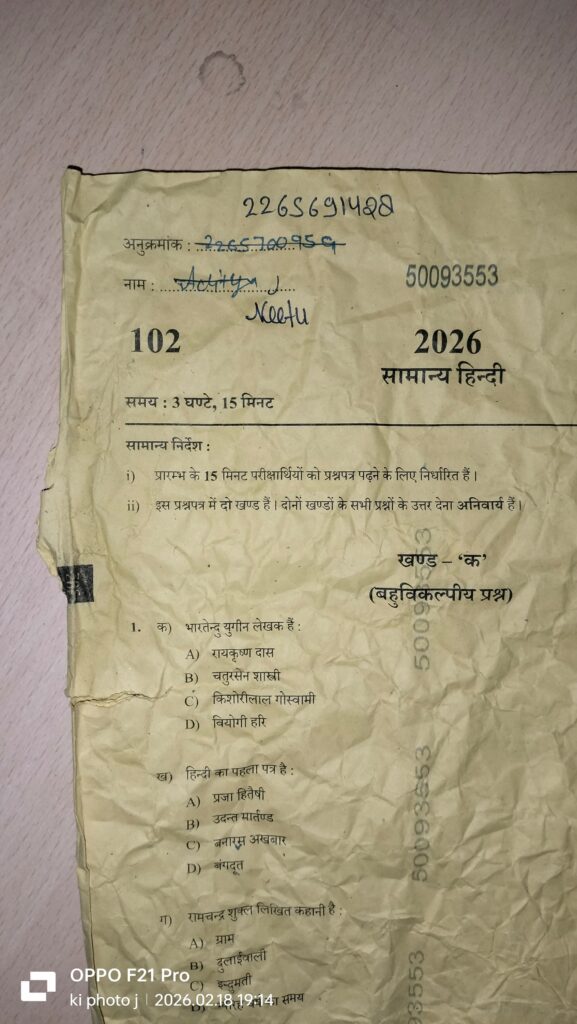 2265691428
अनुक्रमांक : 2265700959
नाम :
50093553
Neetu
102
2026
सामान्य हिन्दी
समय : 3 घण्टे, 15 मिनट
सामान्य निर्देश :
i) प्रारम्भ के 15 मिनट परीक्षार्थियों को प्रश्नपत्र पढ़ने के लिए निर्धारित हैं ।
ii) इस प्रश्नपत्र में दो खण्ड हैं । दोनों खण्डों के सभी प्रश्नों के उत्तर देना अनिवार्य हैं ।
खण्ड – ‘क’
(बहुविकल्पीय प्रश्न)
1. क) भारतेन्दु युगीन लेखक हैं :
A) रायकृष्ण दास
B) चतुरसेन शास्त्री
C) किशोरीलाल गोस्वामी
D) वियोगी हरि
ख) हिन्दी का पहला पत्र है :
A) प्रजा हितैषी
B) उदन्त मार्तण्ड
C) बनारस अखबार
D) बंगदूत
ग) रामचन्द्र शुक्ल लिखित कहानी है :
A) ग्राम
B) दुलाईवाली
C) इन्दुमती
D) का समय
50093553
50093553
50093553
OPPO F21 Pro
ki photo j | 2026.02.18 19:14